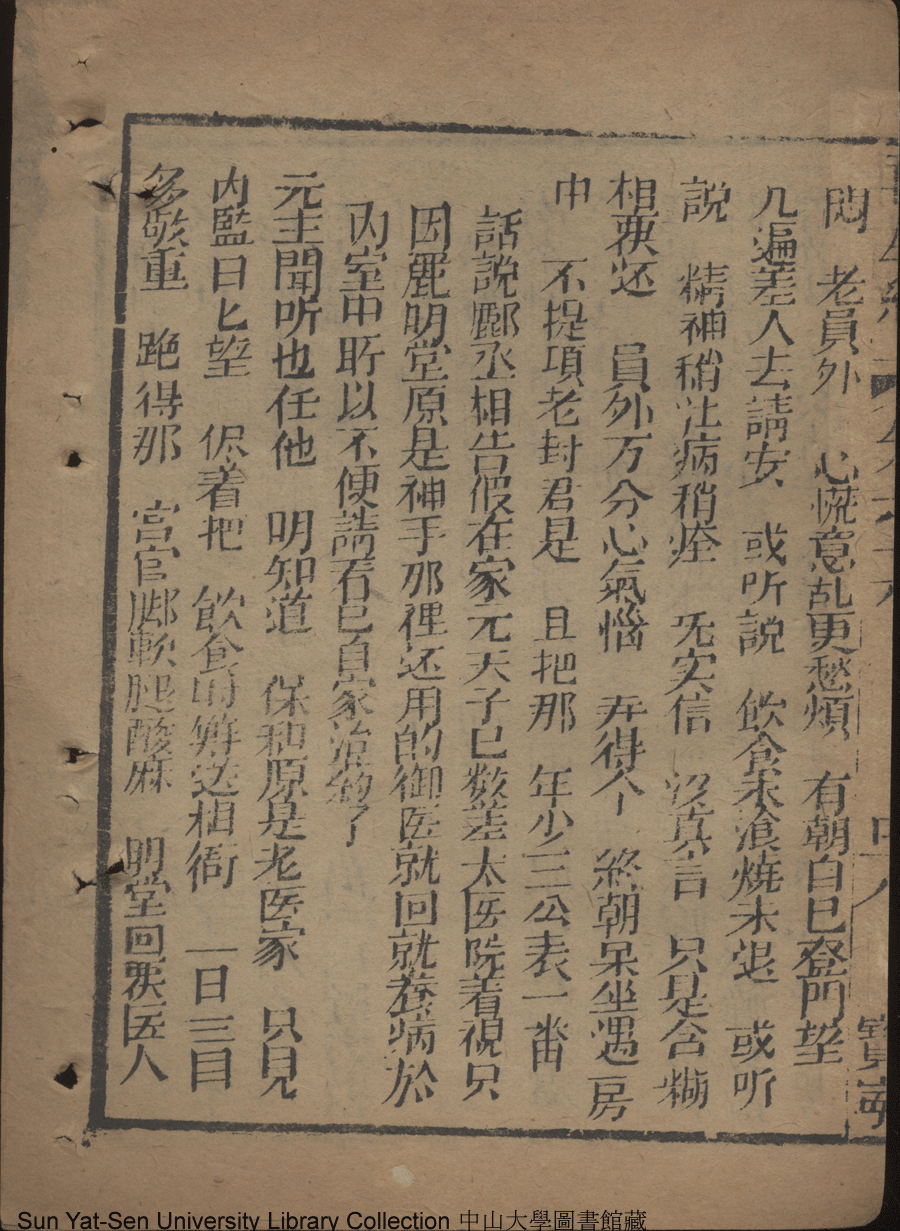 悶　老員外　心慌意乱更愁煩　有朝自巳登門望
几遍差人去請安　或听説　飲食未飡燒未退　或听
説　精神稍壯病稍痊　旣实信　没真言　只是含糊
相覆还　員外万分心氣惱　弄得个　終朝呆坐遇房
中　不提項老封君是　且把那　年少三公表一畨
話説酈丞相告假在家元天子已数差太医院着視只
因麗明堂原是神手那裡还用的御医就回就養病於
內室中所以不便請看已自家治药了
元主聞听也任他　明知道　保和原是老医家　只見
内監日匕望　侭着把　飲食　送相衙　一日三
多敬重　跑得那　宮官脚軟腿酸麻　明堂回覆医人
Sun Yat-Sen University Library Collection 中山大學圖書館藏